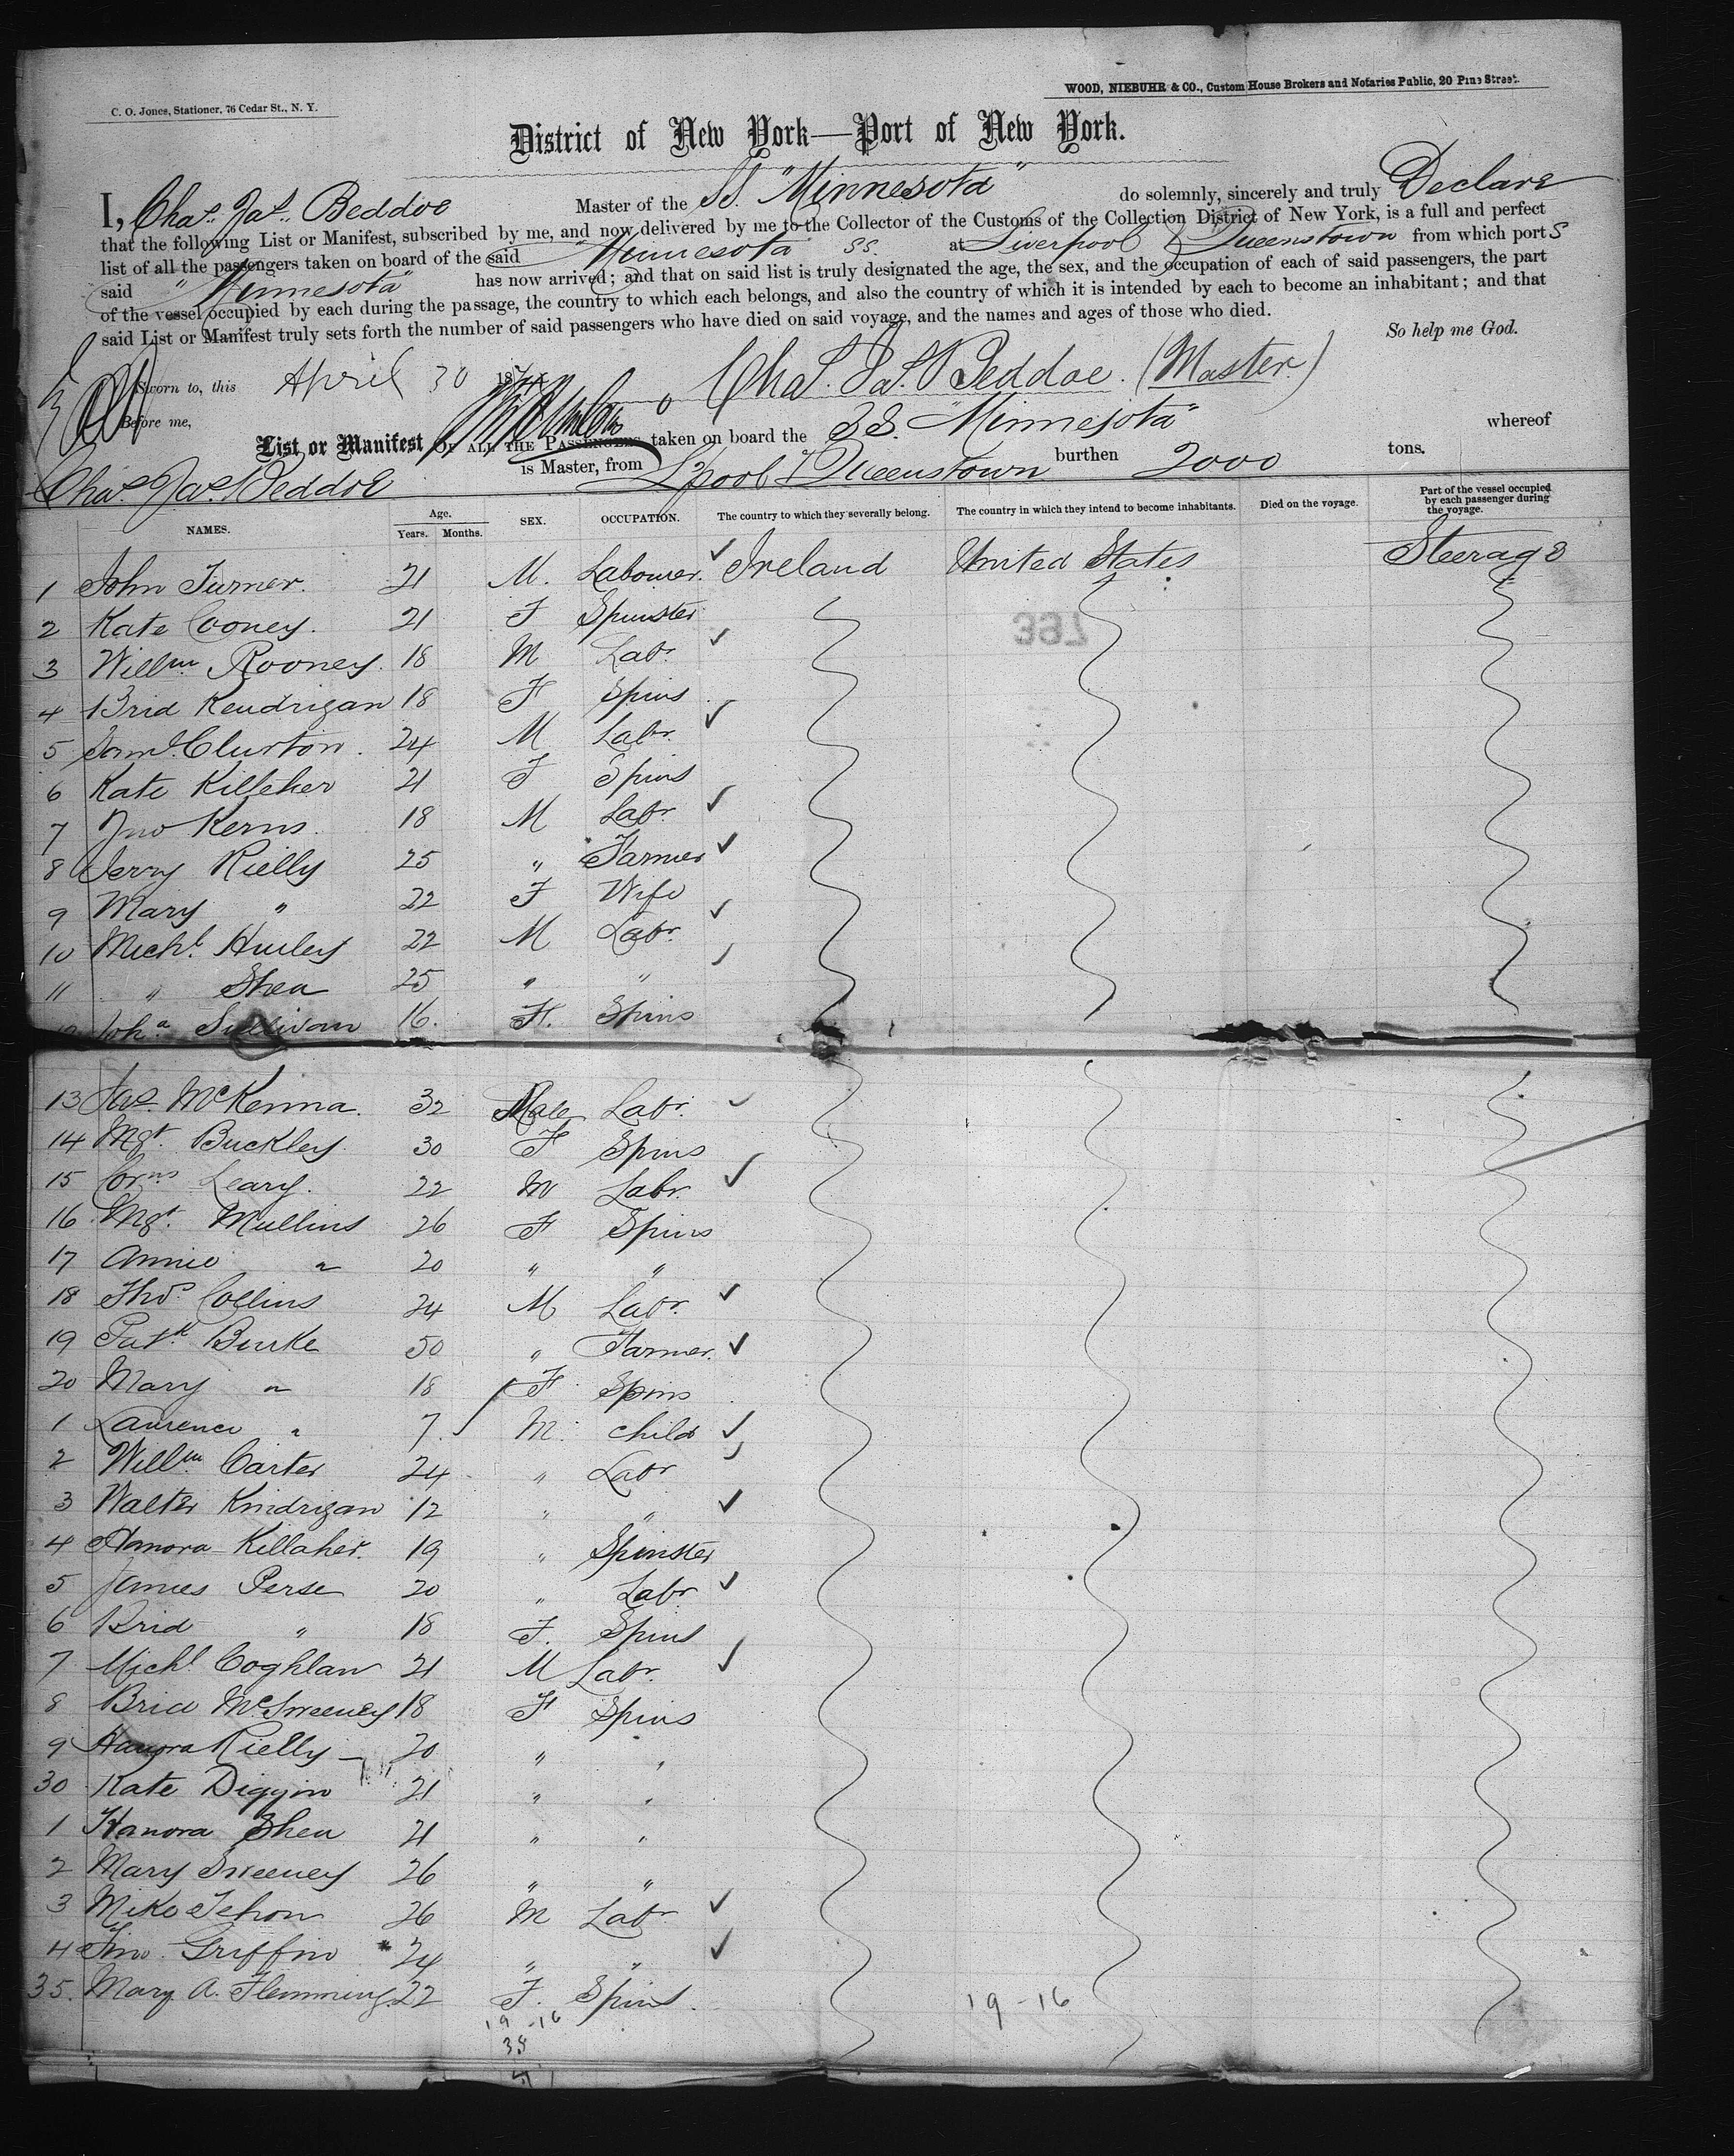 WOOD, NIEBUHR & CO., Custom House Brokers and Notaries Public, 20 Pine Street.
C. O. Jones, Stationer, 76 Cedar St., N. Y.
District of New York—Port of New York.
I, Chas. Jas. Beddoe Master of the SS. "Minnesota" do solemnly, sincerely and truly Declare
that the following List or Manifest, subscribed by me, and now delivered by me to the Collector of the Customs of the Collection District of New York, is a full and perfect
list of all the passengers taken on board of the said "Minnesota" SS. at Liverpool & Queenstown from which port S
said "Minnesota" has now arrived; and that on said list is truly designated the age, the sex, and the occupation of each of said passengers, the part
of the vessel occupied by each during the passage, the country to which each belongs, and also the country of which it is intended by each to become an inhabitant; and that
said List or Manifest truly sets forth the number of said passengers who have died on said voyage, and the names and ages of those who died.
So help me God.
Sworn to, this April 30 187 Chas. Jas. Beddoe. (Master)
Before me,
List or Manifest OF ALL THE PASSENGERS taken on board the SS. "Minnesota" whereof
Chas. Jas. Beddoe is Master, from L'pool & Queenstown burthen 2000 tons.
NAMES. Age. Years. Months. SEX. OCCUPATION. The country to which they severally belong. The country in which they intend to become inhabitants. Died on the voyage. Part of the vessel occupied by each passenger during the voyage.
1 John Turner. 21 M. Labourer. ✓ Ireland United States Steerage
2 Kate Cooney. 21 F Spinster
397
3 Willm Rooney. 18 M Labr. ✓
4 Brid Kendrigan 18 F Spins
5 Saml. Clurton. 24 M Labr. ✓
6 Kate Killeher 21 F Spins
7 Jno Kerns. 18 M Labr. ✓
8 Jerry Rielly 25 " Farmer ✓
9 Mary " 22 F Wife
10 Michl. Hurley 22 M Labr. ✓
11 " Shea 25 " " ✓
12 Joha Sullivan 16. F. Spins
13 Jas. McKenna. 32 Male Labr. ✓
14 Mgt. Buckley. 30 F Spins
15 Corns Leary. 22 M Labr. ✓
16 Mgt. Mullins 26 F Spins
17 Annie " 20 " "
18 Thos Collins 24 M Labr. ✓
19 Patk Burke 50 " Farmer. ✓
20 Mary " 18 F Spins
1 Laurence " 7. M. child ✓
2 Willm Carter 24 " Labr ✓
3 Walter Kindrigan 12 " " ✓
4 Hanora Killaher. 19 " Spinster
5 James Perse 20 " Labr ✓
6 Brid " 18 F. Spins
7 Michl Coghlan 21 M Labr. ✓
8 Brid McSweeney 18 F Spins
9 Hanora Rielly 20 " "
30 Kate Diggin 21 " "
1 Hanora Shea 21 " "
2 Mary Sweeney 26 " "
3 Mike Tehon 26 M Labr ✓
4 Griffin 24 " " ✓
35. Mary A. Flemming 22 F. Spins.
19-16
19-16